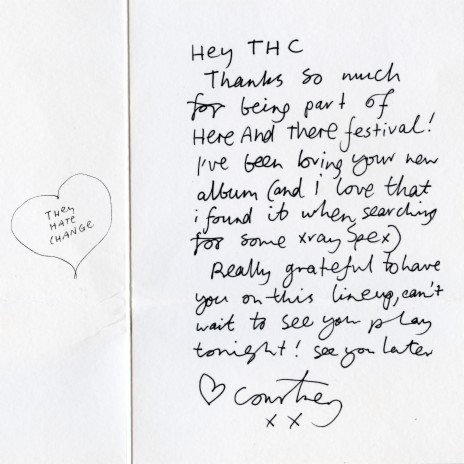 THEY
HATE
CHANGE
Hey THC
Thanks so much
for being part of
Here And There festival!
I've been loving your new
album (and i love that
i found it when searching
for some xray spex)
Really grateful to have
you on this lineup, can't
wait to see you play
tonight! see you later
♡ Courtney
x x